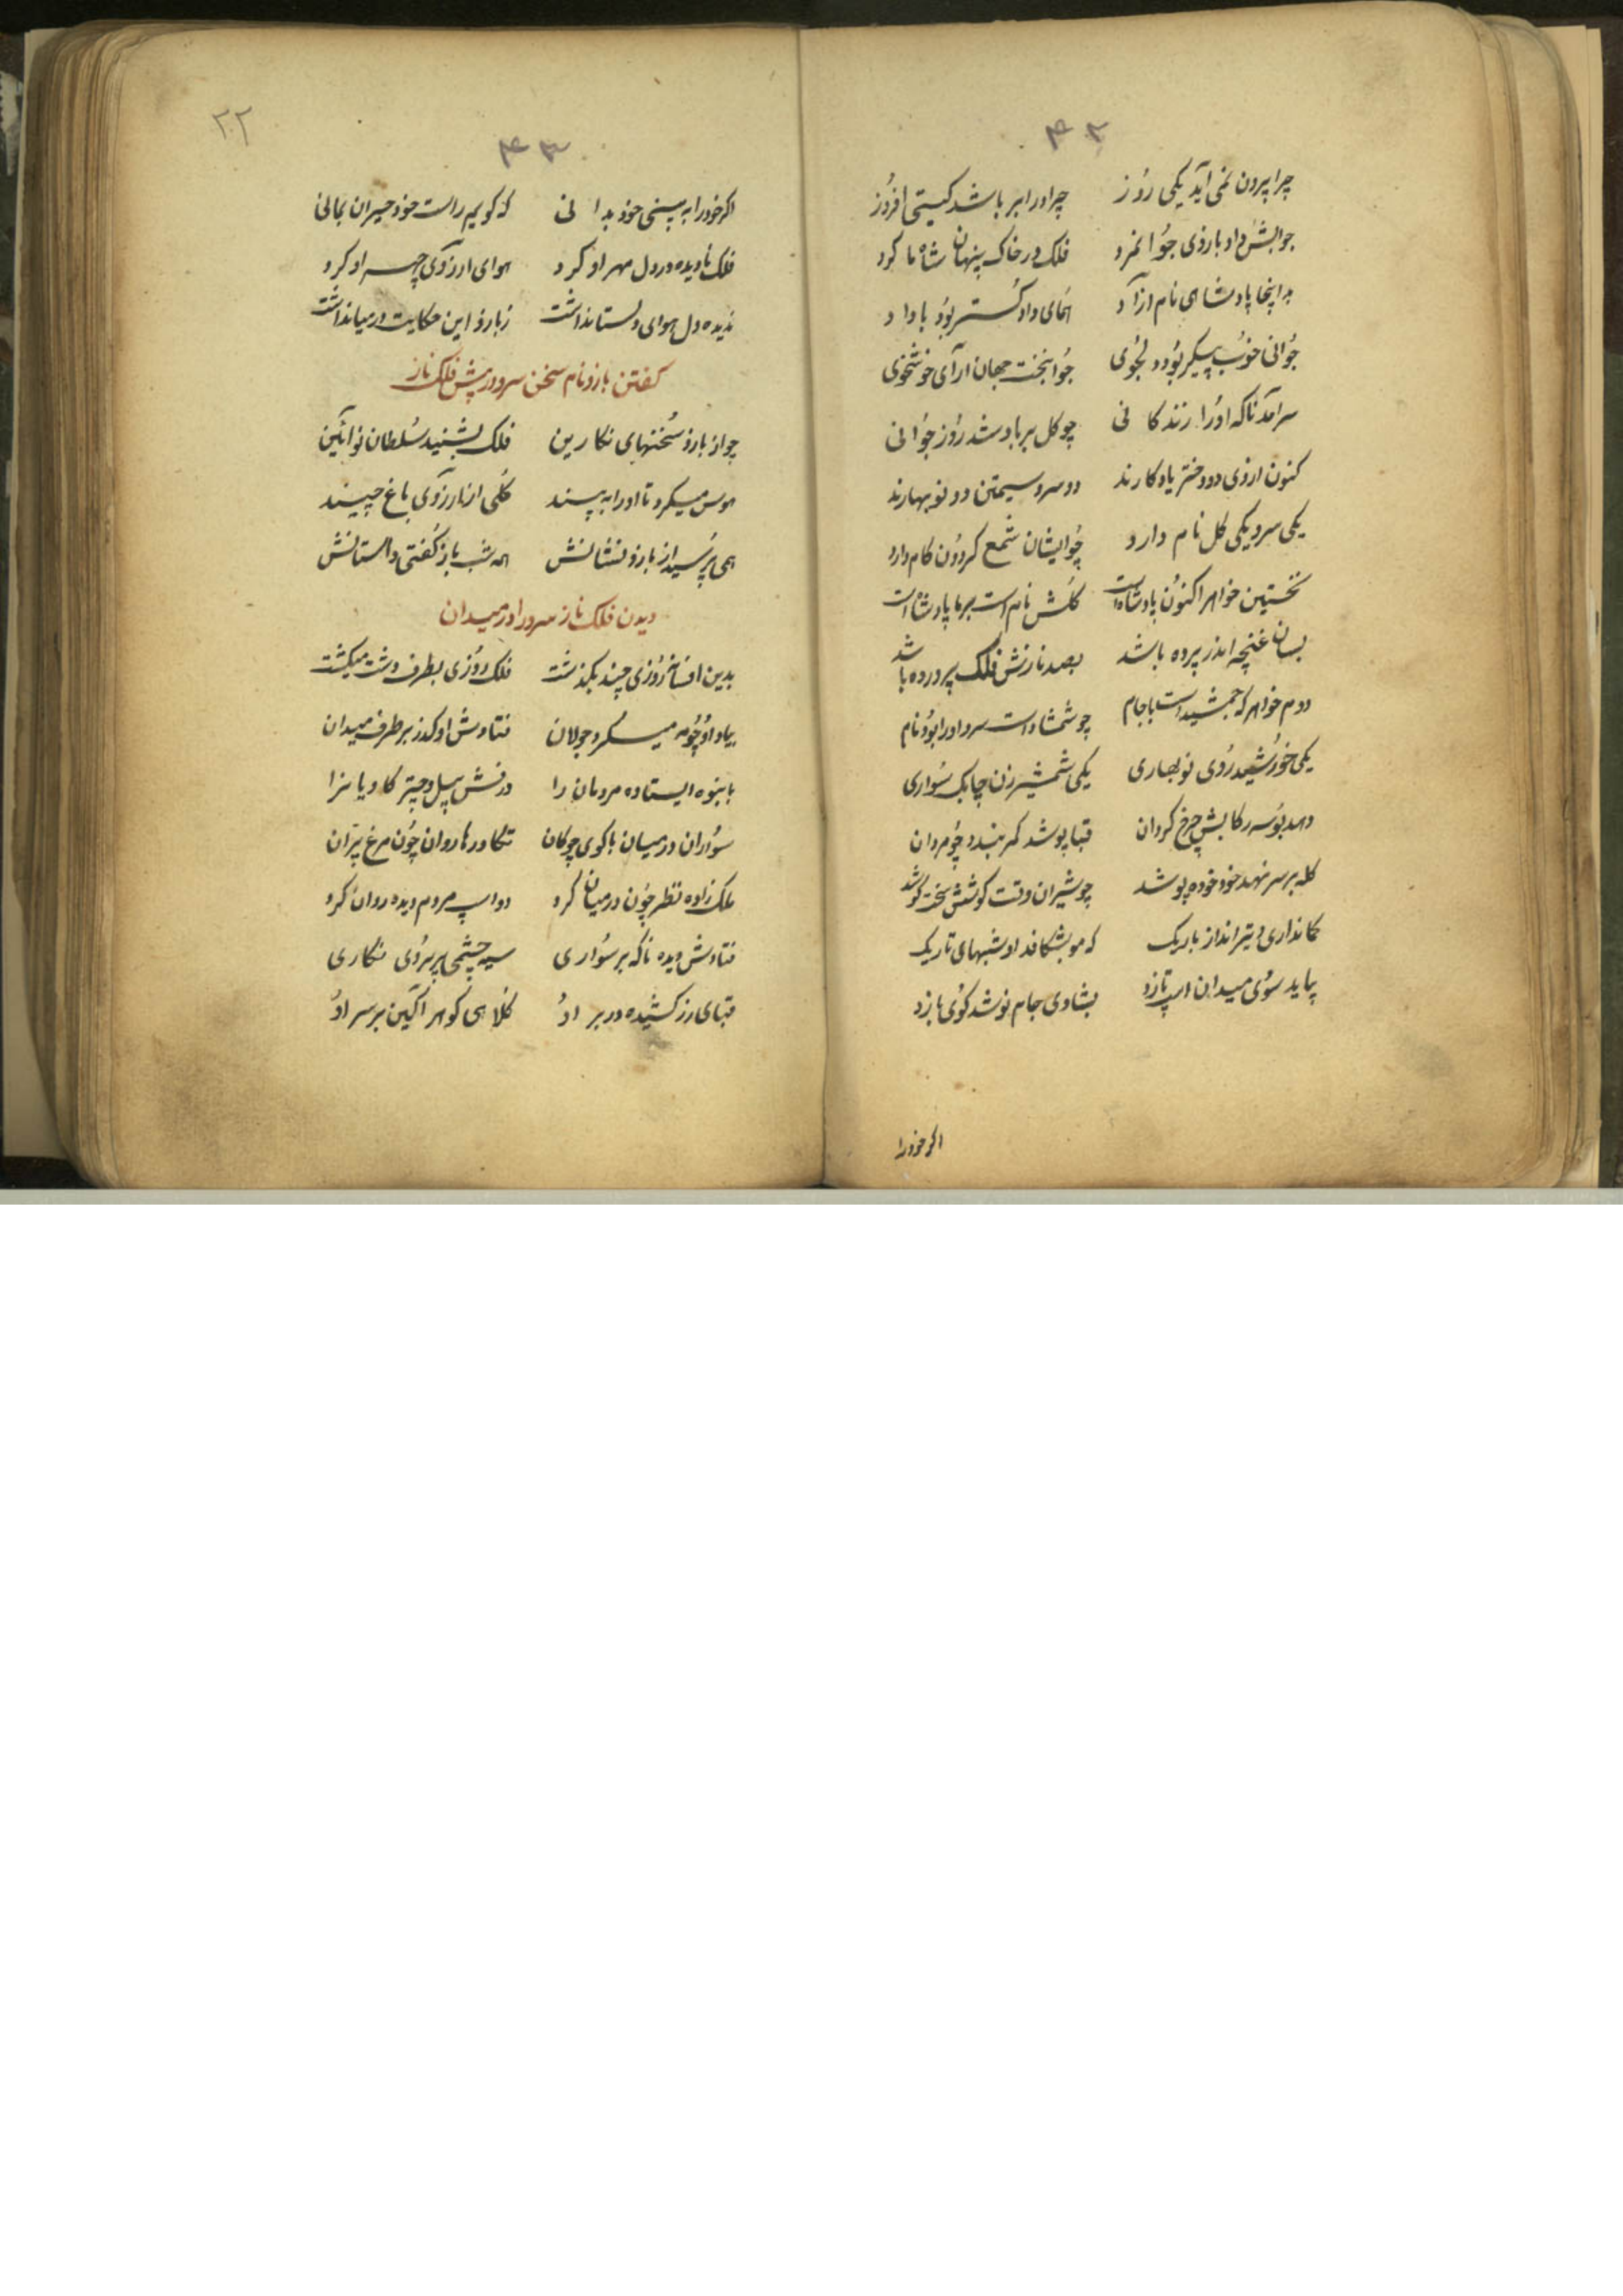 ۴۲
چرا بیرون نمی آید یکی روز چرا در ابر باشد کیتی افروز
جوابش داد بارزی جوانمرد فلک در خاک پنهان شاه ما کرد
بد اینجا پادشاهی نام ازاد همای داد کستر بود با داد
جوانی خوب پیکر بود دلجوی جوانبخت جهان ارآی خوشخوی
سرآمد ناکه اورا زندکانی چو کل بر باد شد روز جوانی
کنون ازوی دو دختر یادکارند دو سرو سیمتن دو نوبهارند
یکی سرو یکی کل نام دارد چو ایشان شمع کردون کام دارد
نخستین خواهر اکنون پادشاه است کلش نام است بر ما پادشاه است
بسان غنچه اندر پرده باشد بصد نازش فلک پرورده باشد
دوم خواهر که جمشید است با جام چو شمشاد است سرو اورا بود نام
یکی خورشید روی نوبهاری یکی شمشیرزن چابک سواری
دهد بوسه رکابش چرخ کردان قبا پوشد کمر بندد چو مردان
کله بر سر نهد خود خوده پوشد چو شیران وقت کوشش سخت کوشد
کمانداری و تیرانداز باریک که مو بشکافد او شبهای تاریک
بیاید سوی میدان اسپ تازد بشادی جام نوشد کوی بازد
اکر خودرا
۲۲
۴۳
اکر خودرا به بینی خود بدانی که کویم راست خود حیران بمانی
فلک نادیده در دل مهر او کرد هوای ارزوی چهر او کرد
ندیده دل هوای دلستانداشت زبارز این حکایت در میانداشت
کفتن بارزنام سخن سرو در پیش فلک ناز
چو از بارز سخنهای نکارین فلک بشنید سلطان نوآئین
هوس میکرد تا اورا به بیند کلی از نارزوی باغ چیند
همی پرسید از بارز نشانش همه شب باز کفتی داستانش
دیدن فلک ناز سرو را در میدان
بدین افسانه روزی چند بکذشت فلک روزی بطرف دشت میکشت
بیاد او چو مه میکرد جولان فتادش او کذر بر طرف میدان
بانبوه ایستاده مردمان را درفش پیل و چتر کاویانرا
سواران در میان با کوی چوکان تکاورها روان چون مرغ پران
ملک زاده نظر چون در میان کرد دو اسپ مردم دیده روان کرد
فتادش دیده ناکه بر سواری سیه چشمی پریروی نکاری
قبای زرکشیده در بر او کلاهی کوهر اکین بر سر او